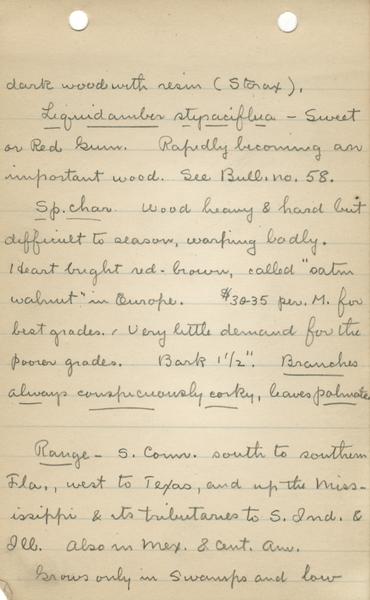 dark wood with resin (Storax).
Liquidamber styraciflua - Sweet
or Red Gum. Rapidly becoming an
important wood. See Bull. no. 58.
Sp. Char. Wood heavy & hard but
difficult to season, warping badly.
Heart bright red-brown, called "satin
walnut" in Europe. $30-35 per. M. for
best grades. Very little demand for the
poorer grades. Bark 1 1/2". Branches
always conspicuously corky, leaves palmate.
Range - S. Conn. south to southern
Fla., west to Texas, and up the Miss-
issippi & its tributaries to S. Ind. &
Ill. Also in Mex. & Cent. Am.
Grows only in Swamps and low